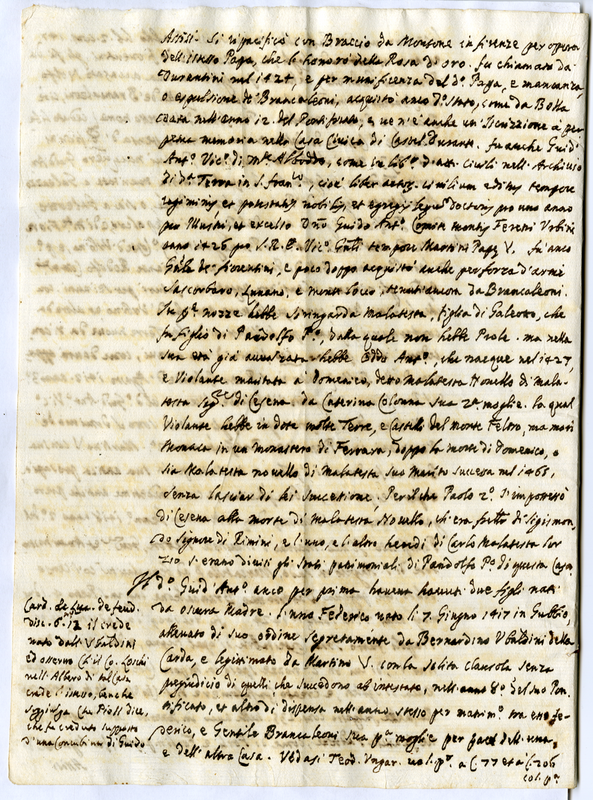 Assisi. Si ripacificò con Braccio da Montone in firenze per opera
dell'istesso Papa, che l'honorò della Rosa di oro. fu chiamato da
Durantini nel 1424, e per munificenza del d.º Papa, e mancanza,
o espulsione de' Brancaleoni, acquistò anco d.º stato, come da Bolla
data nell'anno 12. del Pontificato, e ve n'è anche un'Iscrizzione a per
petua memoria nella Casa Civica di Castel Durante. fu anche Guid'
Ant.º Vic.º di
di d.ª Terra in S. fran.co, cioè liber actor. civilium editus tempore
regiminis et potestatis nobilis, et egregii legum doctoris pro uno anno
pro Illustri, et excelso Dño Guido Ant.º Comite Montis Feretri Urbini
anno 1426 pro S. R. E. Vic.º Gñli tempore Martini Papę V. fu anco
Gñle de' fiorentini, e poco doppo acquistò anche per forza d'armi
Sascorbaro, Lunano, e monte Locco, tenuti ancora da Brancaleoni.
In p.e nozze hebbe Siringarda Malatesta, figlia di Galeotto, che
fu figlio di Pandolfo P.º, dalla quale non hebbe Prole. ma nella
sua età già avvalzata hebbe Oddo Ant.º, che nacque nel 1427,
e Violante maritata a Domenico, detto Malatesta Novello di Mala-
testa Sig.re di Cesena, da Caterina Colonna sua 2.ª moglie. la qual
Violante hebbe in dote molte Terre, e Castelli del monte Feltro, ma morì
Monaca in un monastero di Ferrara, doppo la morte di Domenico, o
sia Malatesta novello di Malatesta suo Marito successa nel 1465,
senza lasciar di lei successione. Perilche Paolo 2.º s'impossessò
di Cesena alla morte di Malatesta Novello, ch'era frãtello di Sigismon
do Signore di Rimini, e l'uno, e l'altro heredi di Carlo Malatesta lor
zio s'erano divisi gli stati patrimoniali di Pandolfo P.º di questa Casa.
Il d.º Guid'Ant.º anco per prima haveva havuti due figli nati
da oscura Madre. l'uno Federico nato li 7. Giugno 1417 in Gubbio,
allevato di suo ordine segretamente da Bernardino Ubaldini della
Carda, e legitimato da Martino V. con la solita clausola senza
pregiudicio di quelli che succedono ab intestato, nell'anno 8.º del suo Pon
tificato, et altro di dispensa nell'anno stesso per matrim.º tra esso fe-
derico, e Gentile Brancaleoni sua p.ª moglie per pace dell'una,
e dell'altra Casa. Vedasi Teod. Vngar. vol. p.º a C. 77 et a C. 206
col. p.ª
Card. de Luca. de feud.
disc. 6. n. 12 il crede
nato dall'Ubaldini
ed osserva ch'il Co. Loschi
nell'Albero di tal Casa
crede l'istesso, benche
soggiunga che Pio II dice,
che fu creduto supposto
d'una Concubina di Guido